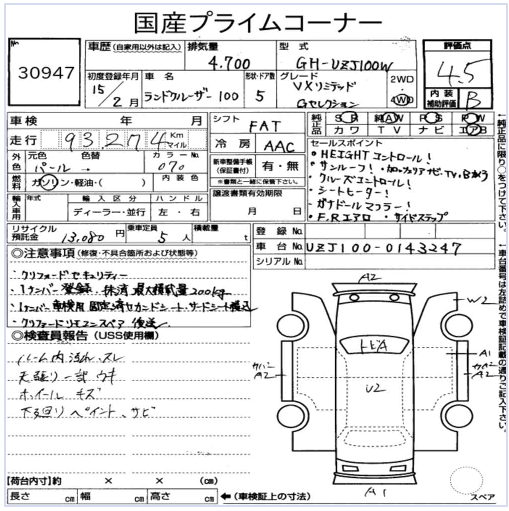 国産プライムコーナー
30947
車歴 (自家用以外は記入) 排気量 4.700 型式 GH-UZJ100W 評価点 4.5
初度登録年月 15/2月 車名 ランドクルーザー100 形状・ドア数 5 グレード VXリミテッド Gセレクション 2WD・4WD 内装補助評価 B
車検 年 月 シフト FAT 純正品 SR 純AW PS PW カワ TV ナビ エアB
走行 93,274 Km マイル 冷房 AAC
セールスポイント
外色 元色 パール→ 色替 カラーNo. 070 新車整備手帳(保証書付) 有・無
※書類と一緒に保管下さい。
・HEIGHTコントロール!
・サンルーフ!
・クルーズコントロール!
・シートヒーター!
・ガナドールマフラー!
・F,Rエアロ ・サイドステップ
燃料 ガソリン・軽油・( ) 内装色
譲渡書類有効期限 月 日
輸入車用 年式 輸入区分 ハンドル
ディーラー・並行 左・右
リサイクル預託金 13,080円 乗車定員 5人 積載量 t
登録No.
車台No. UZJ100-0143247
シリアルNo.
純正品に限り○をつけて下さい。
車台番号は左詰めで車検証記載の通りご記入下さい。
◎注意事項 (修復・不具合箇所および状態等)
・クリフォードセキュリティー
・1ナンバー登録
◎検査員報告 (USS使用欄)
天張り一部ウキ
ホイール キズ
下廻りペイント、サビ
A2
W2
A1
A2
A2
U2
A1
スペア
【荷台内寸】約 × × (cm)
長さ cm 幅 cm 高さ cm ←(車検証上の寸法)